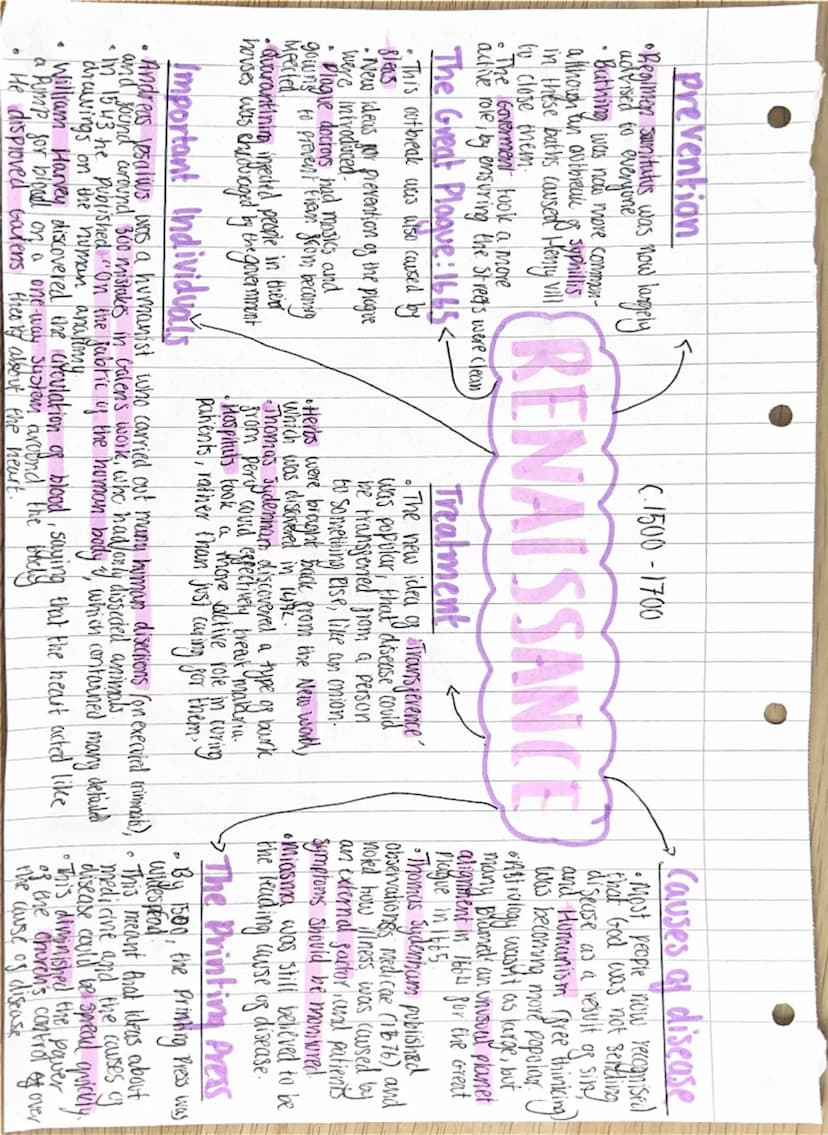 C.1500 - 1700
RENAISSANCE
Prevention
• Regimen sanitatis was now largely
advised to everyone
• Bathing was now more common
although an outbreak of syphilis
in these baths caused Henry VIII
to close them.
• The Goverment took a more
active role, by ensuring the streets were clean
The Great Plague: 1665
• This outbreak was also caused by
fleas
• New ideas for prevention of the plague
were introduced.
• Plague doctors had masks and
gowns to prevent them from becoming
infected.
• Quarantining infected people in their
houses was encouraged by the government
Important Individuals
• Andreas Vesalius was a humanist who carried out many human disections (on executed criminals),
and found around 300 mistakes in Galens work, who had only dissected animals.
• In 1543 he published 'On the fabric of the human body', which contained many detailed
drawings on the human anatomy
• William Harvey discovered the circulation of blood, saying that the heart acted like
a pump for blood on a one-way system around the body
• He disproved Galens theory about the heart.
Treatment
• The new idea of 'Transference'
was popular, that disease could
be transferred from a person
to something else, like an onion.
• Herbs were brought back from the New world,
which was discovered in 1492.
• Thomas Sydenham discovered a type of bark
from peru could effectively treat malaria.
• Hospitals took a more active role in curing
patients, rather than just caring for them.
Causes of disease
• Most people now recognised
that God was not sending
disease as a result of sin,
and Humanism (free thinking)
was becoming more popular
• Astrology wasn't as large, but
many blamed an unusual planet
alignment in 1664 for the Great
Plague in 1665.
• Thomas Sydenham published
observationes medicae (1676) and
noted how illness was caused by
an external factor, and patients
symptoms should be monitored
• Miasma was still believed to be
the leading cause of disease.
The Printing Press
• By 1500, the Printing Press was
widespread.
• This meant that ideas about
medicine and the causes of
disease could be spread quickly.
• This diminished the power
of the church's control over
the cause of disease